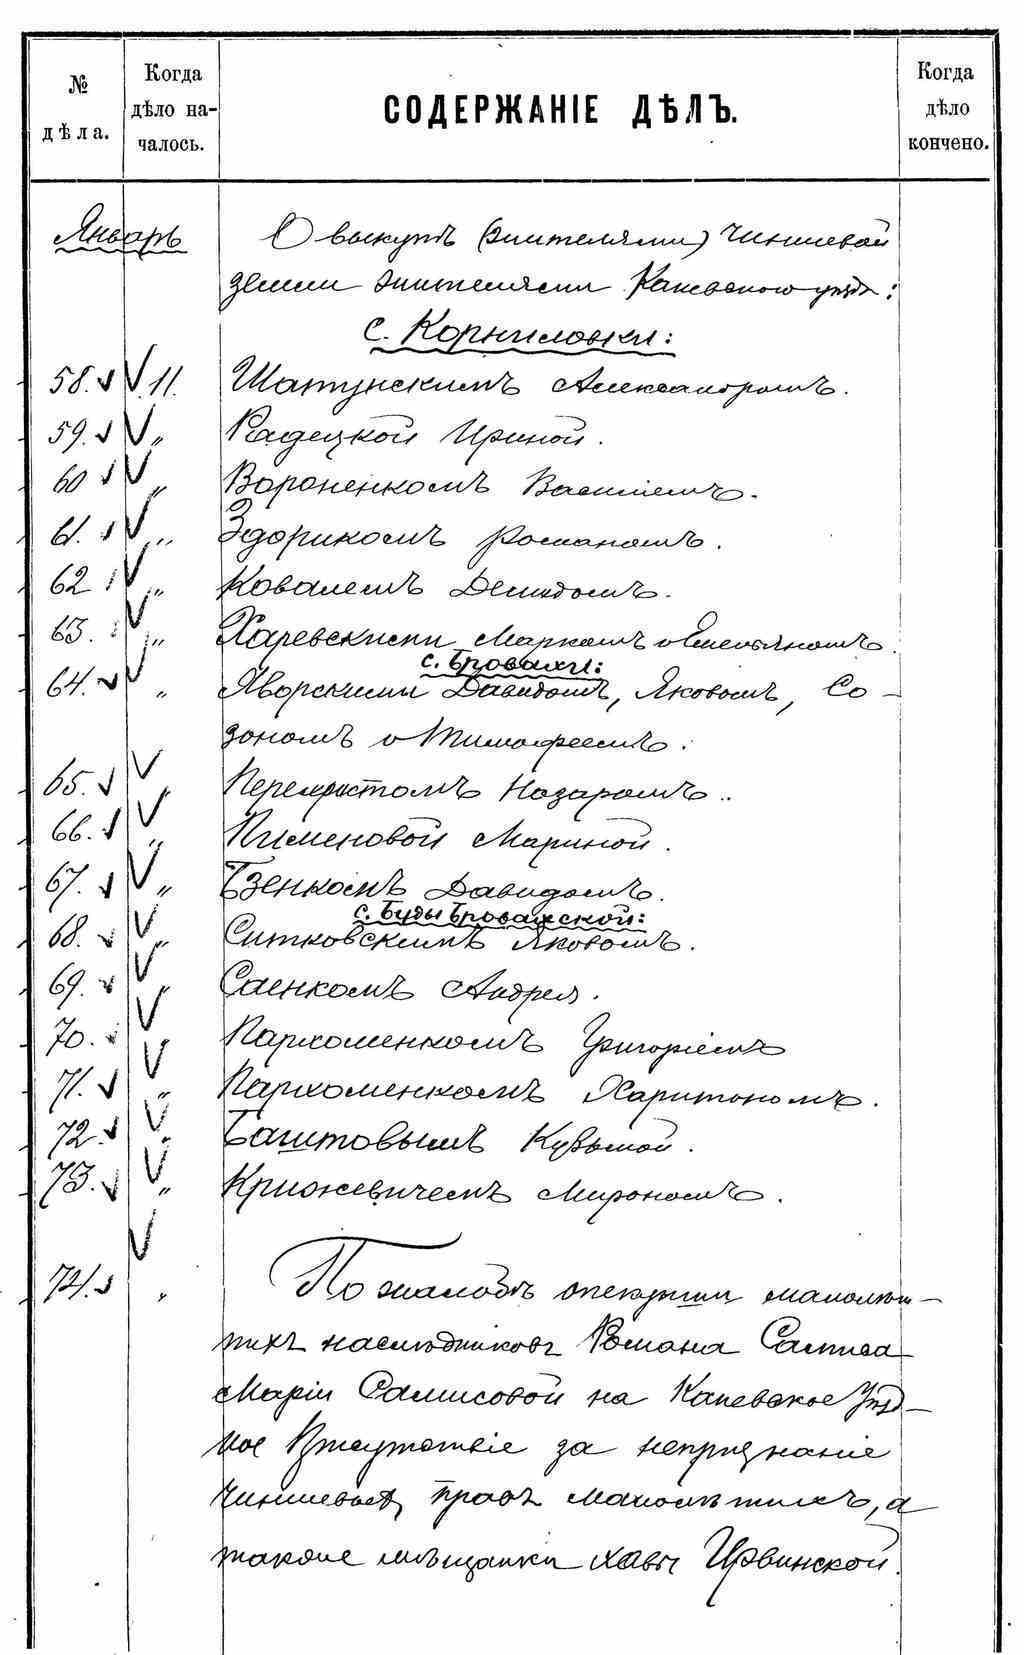 № дѣла.
Когда дѣло на-
чалось.
СОДЕРЖАНІЕ ДѢЛЪ.
Когда дѣло кончено.
Январь
О выкупѣ (жителями) чиншевой
земли жителями Каневскаго уѣзда:
с. Корниловки:
58. 11. Шатунскимъ Александромъ.
59. „ Радецкой Ириной.
60 „ Вороненкомъ Василіемъ.
61. „ Здорикомъ Романомъ.
62 „ Ковалемъ Демидомъ.
63. „ Харевскими Маркомъ и Емельяномъ.
с. Бровахи:
64. „ Яворскими Давидомъ, Яковомъ, Со-
зономъ и Тимофеемъ.
65. „ Перехрстомъ Назаромъ.
66. „ Пименовой Мариной.
67. „ Бзенкомъ Давидомъ.
с. Буды Бровахской:
68. „ Ситковскимъ Яковомъ.
69. „ Саенкомъ Андрея.
70. „ Пархоменкомъ Григоріемъ
71. „ Пархоменкомъ Харитономъ.
72. „ Баштовымъ Кузьмой.
73. „ Крижевичемъ Мирономъ.
74. „ По жалобѣ опекунши малолѣт-
тихъ наслѣдниковъ Романа Самиса
Маріи Самисовой на Каневское Уѣзд-
ное Присутствіе за непризнаніе
чиншевыхъ правъ малолѣтнихъ, а
также мѣщанки Хавы Ирвинской.